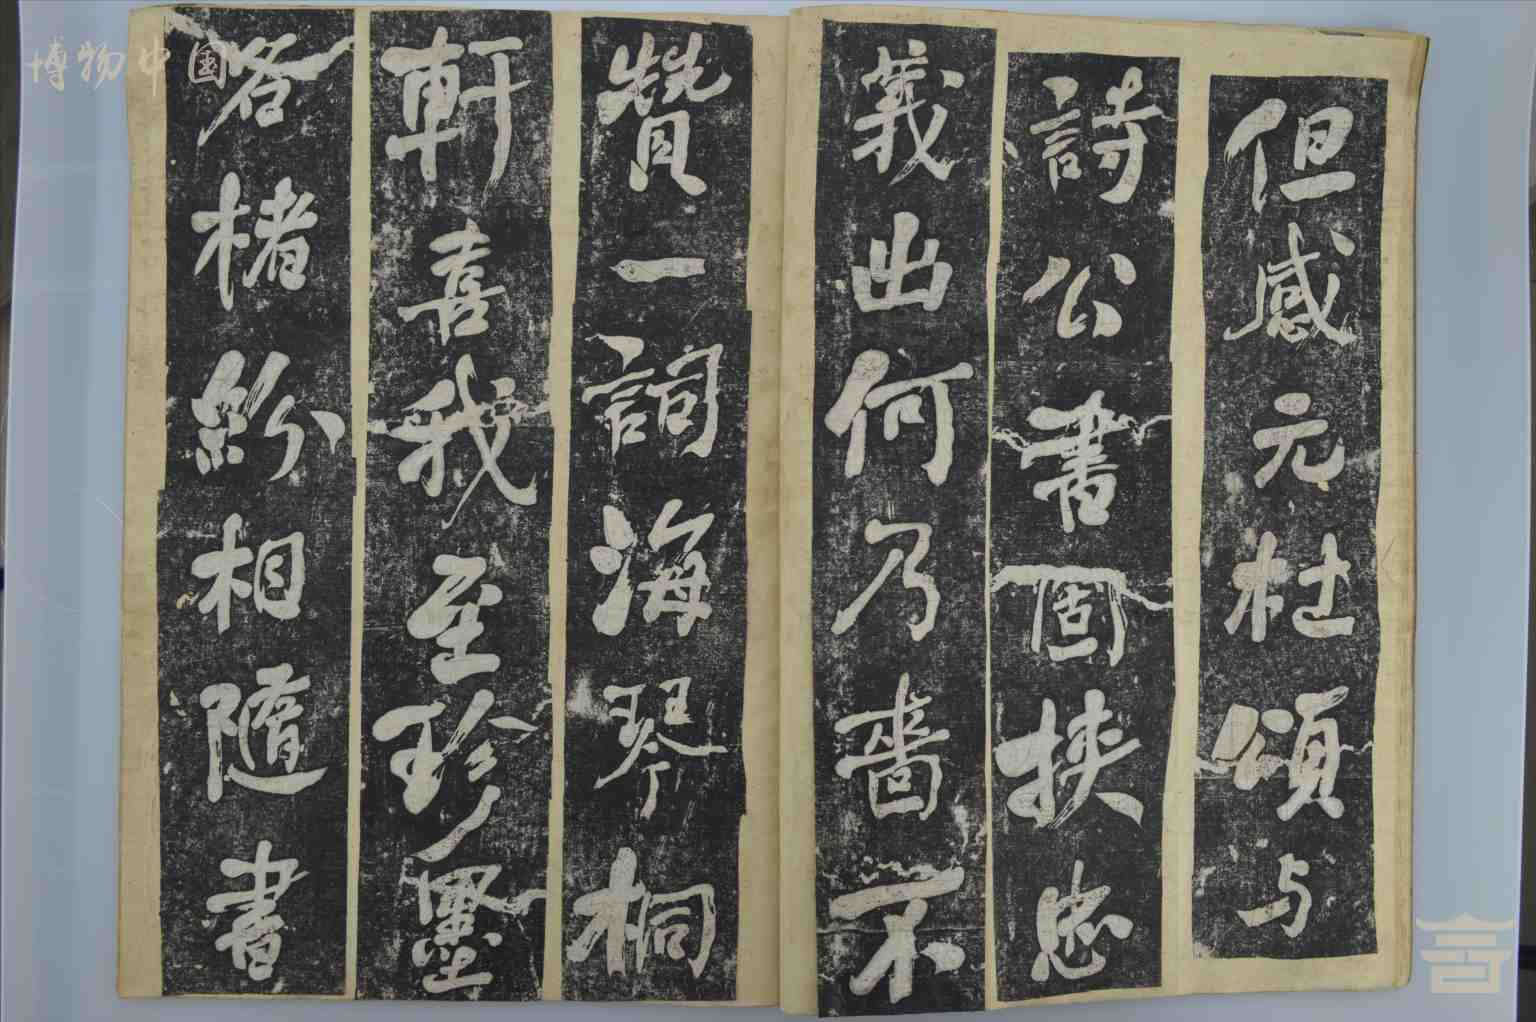 但感元杜頌与
詩公書固挾忠
義出何乃嗇不
賛一詞海琴桐
軒喜我至珍墨
名楮紛相隨書
博物中国